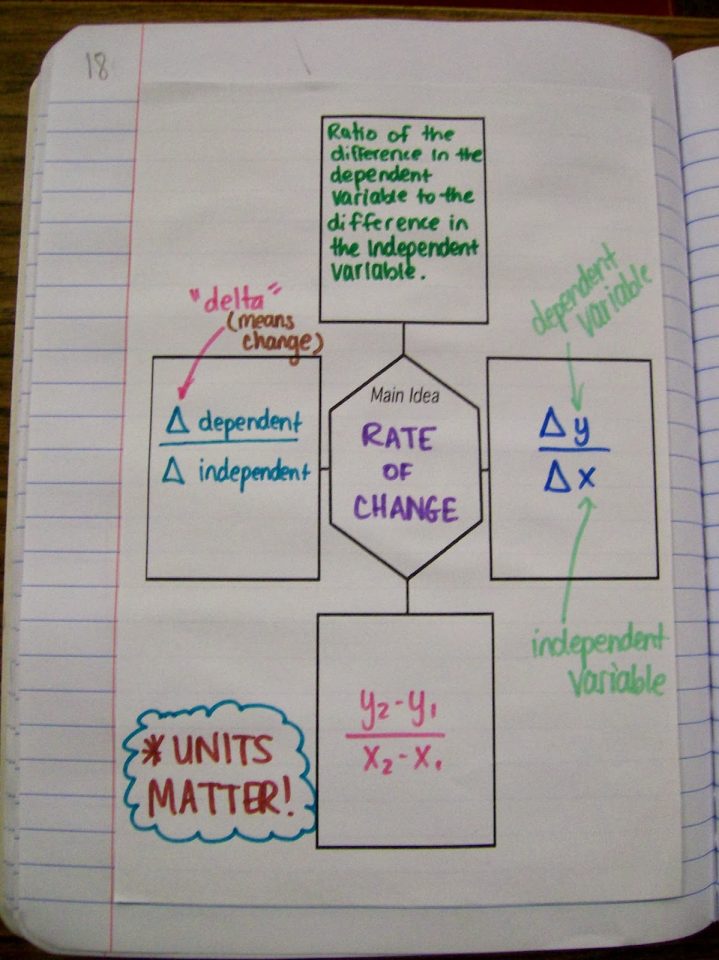 18
Ratio of the
difference in the
dependent
variable to the
difference in
the independent
variable.
"delta"
(means
change)
Δ dependent
Δ independent
Main Idea
RATE
OF
CHANGE
dependent
variable
Δy
Δx
independent
variable
y₂-y₁
x₂-x₁
* UNITS
MATTER!